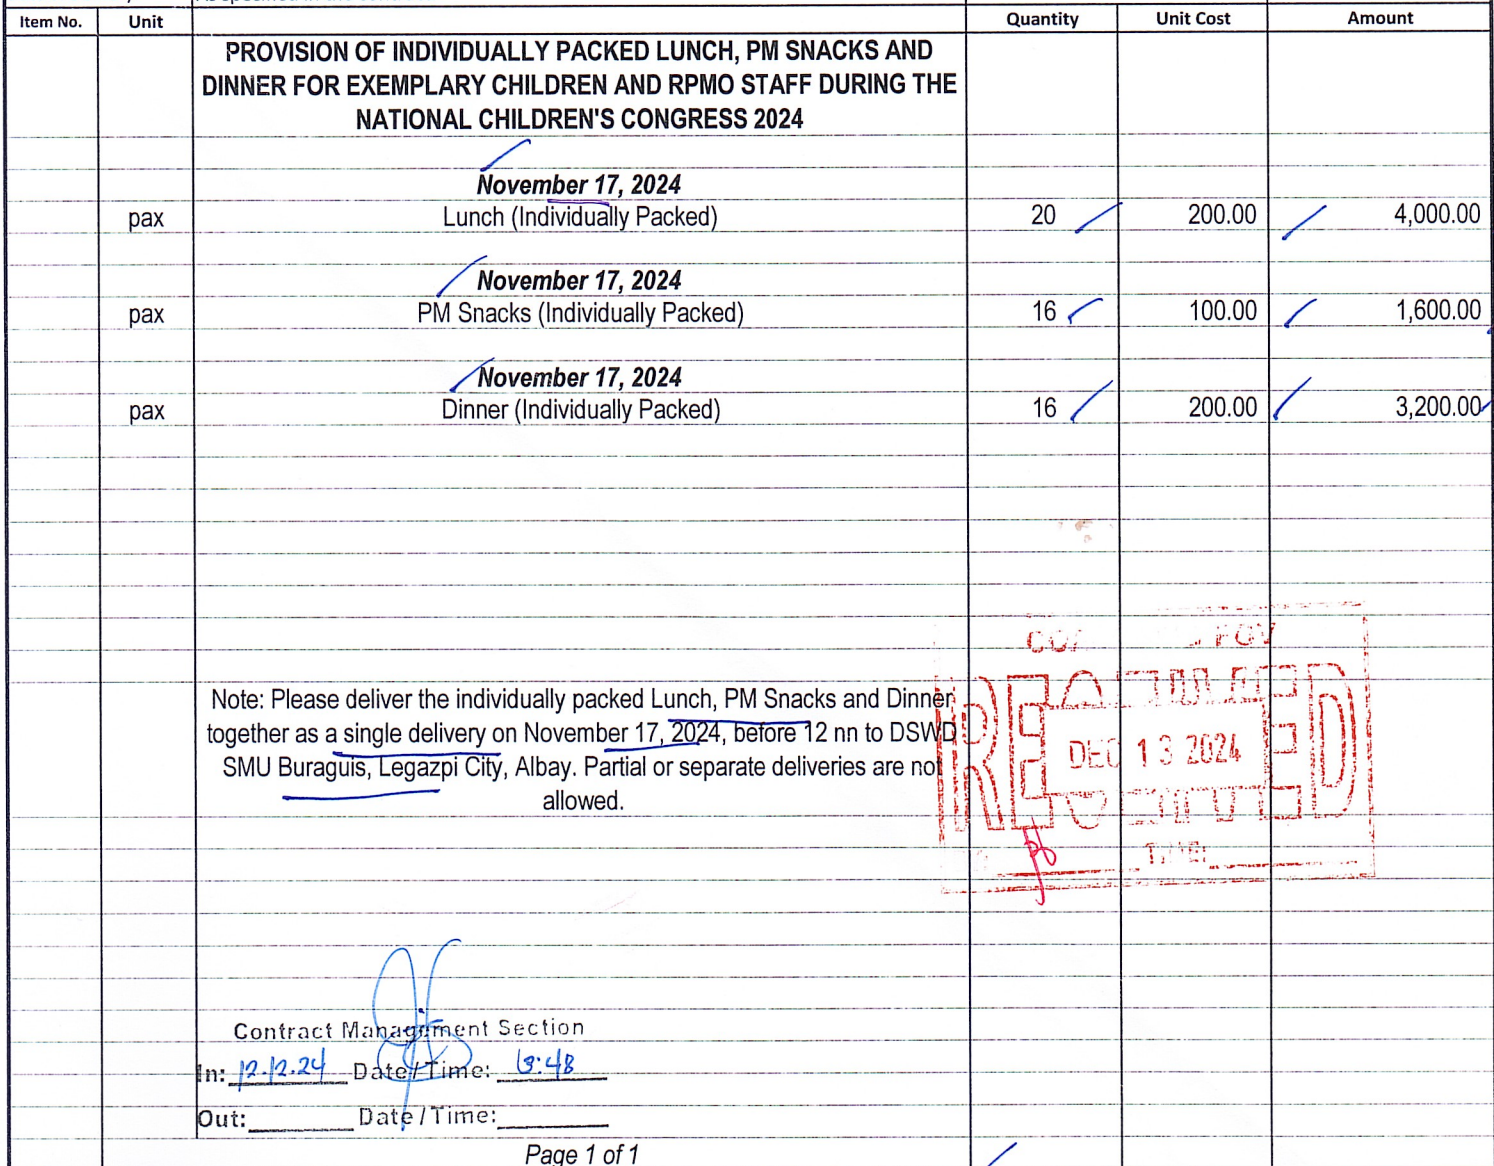 Item No. Unit Quantity Unit Cost Amount
PROVISION OF INDIVIDUALLY PACKED LUNCH, PM SNACKS AND
DINNER FOR EXEMPLARY CHILDREN AND RPMO STAFF DURING THE
NATIONAL CHILDREN'S CONGRESS 2024
November 17, 2024
pax Lunch (Individually Packed) 20 200.00 4,000.00
November 17, 2024
pax PM Snacks (Individually Packed) 16 100.00 1,600.00
November 17, 2024
pax Dinner (Individually Packed) 16 200.00 3,200.00
Note: Please deliver the individually packed Lunch, PM Snacks and Dinner
together as a single delivery on November 17, 2024, before 12 nn to DSWD
SMU Buraguis, Legazpi City, Albay. Partial or separate deliveries are not
allowed.
RECEIVED
DEC 13 2024
TIME:
Contract Management Section
In: 12.12.24 Date/Time:
Out: Date/Time:
Page 1 of 1